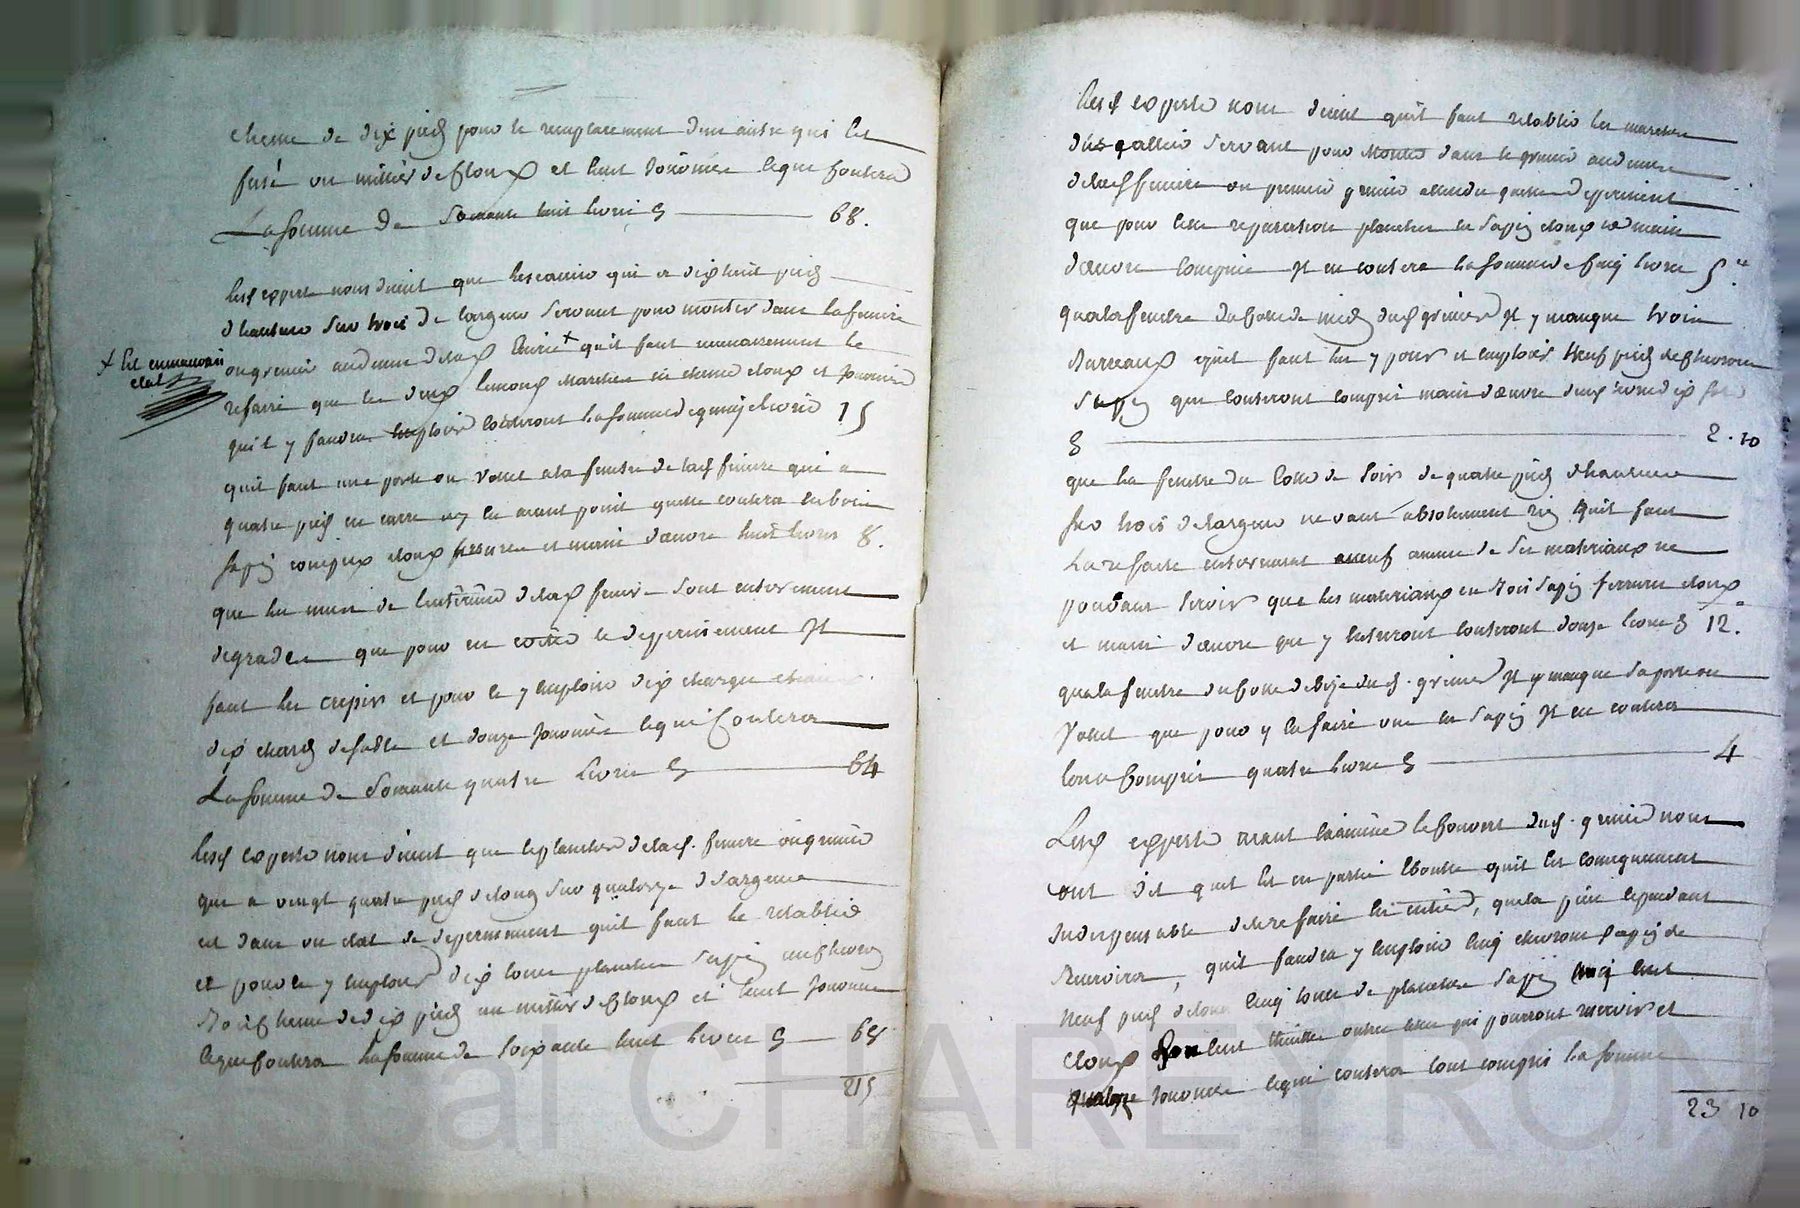 chesne de dix pieds pour le remplacement dun autre qui est
fusé un millier de Cloux et huit Journées ce que Coutera
La somme de Soixante huit livres 68.
Lesd experts nous disent que lescallier qui a dix huit pieds
dhauteur sur trois de largeur servant pour monter dans la feniere
ou grenier audessus de lad Ecurie + quil faut necessairement le
+ Est en mauvais
etat
refaire que les deux limons marches en chesne cloux et Journées
quil y faudra Employer Couteront la somme de quinze livres 15
quil faut une porte ou volet a la fenetre de lad feniere qui a
quatre pieds en carré
sapin compris cloux ferrures et main dœuvre huit livres 8.
que les murs de linterieur de lad feniere sont entierement
degradés que pour en eviter le deperissement Il
faut les crepir et pour ce y Employer dix charges chaux
dix chards de sable et douze Journées ce qui Coutera
La somme de Soixante quatre Livres 64
Lesd Experts nous disent que le plancher de lad. feniere ou grenier
qui a vingt quatre pieds de long sur quatorze de largeur
est dans un etat de deperissement quil faut le retablir
et pour ce y employer dix douzes planches sapin
Bois Chesne de dix pieds un millier de Cloux et huit Journées
ce que Coutera La somme de soixante huit livres 68
215
Lesd Experts nous disent quil faut retablir les marches
descallier servant pour Monter dans le grenier audessus
de lad feniere ou premier grenier attendu
que pour cette reparation planches en sapin cloux et main
dœuvre Compris Il en coutera la somme de Cinq livres 5
qua la fenetre du Cotté de midy dud grenier Il y manque trois
Barreaux quil faut les y poser et employer Neuf pieds de Chevron
Sapin que Couteront compris main dœuvre deux livres dix sols
2. 10
que la fenetre du Cotté de soir de quatre pieds dhauteur
sur trois de largeur ne vaut absolument rien quil faut
La refaire entierement a neuf aucun de ses materiaux ne
pouvant servir que les materiaux en Bois sapin ferrures cloux
et main dœuvre que y entreront Couteront douze livres 12.
qua la fenetre du Cotté de bize dud. grenier Il y manque sa porte ou
Volet que pour y en faire une en sapin Il en coutera
tout Compris quatre livres 4
Lesd experts ayant Examiné le Couvert dud. grenier nous
ont dit quil Est en partie Ecoulé quil Est consequament
Indispensable de le refaire en entier, que la piece cependant
Resservira, quil faudra y Employer Cinq chevrons sapin de
Neuf pieds de long Cinq douzes de planches sapin
Cloux cent thuilles outre celles qui pourront reservir et
quatorze Journées ce qui coutera tout compris la somme
23 10